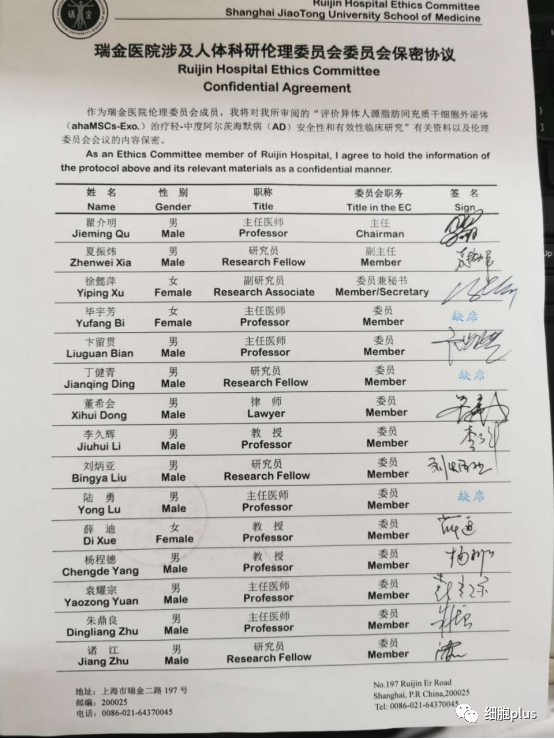 Ruijin Hospital Ethics Committee
Shanghai JiaoTong University School of Medicine
瑞金医院涉及人体科研伦理委员会委员会保密协议
Ruijin Hospital Ethics Committee
Confidential Agreement
作为瑞金医院伦理委员会成员，我将对我所审阅的“评价异体人源脂肪间充质干细胞外泌体
（ahaMSCs-Exo.）治疗轻-中度阿尔茨海默病（AD）安全性和有效性临床研究”有关资料以及伦理
委员会会议的内容保密。
As an Ethics Committee member of Ruijin Hospital, I agree to hold the information of
the protocol above and its relevant materials as a confidential manner.
姓 名 性 别 职称 委员会职务 签 名
Name Gender Title Title in the EC Sign
瞿介明 男 主任医师 主任
Jieming Qu Male Professor Chairman
夏振炜 男 研究员 副主任
Zhenwei Xia Male Research Fellow Member
徐懿萍 女 副研究员 委员兼秘书
Yiping Xu Female Research Associate Member/Secretary
毕宇芳 女 主任医师 委员 缺席
Yufang Bi Female Professor Member
卞留贯 男 主任医师 委员
Liuguan Bian Male Professor Member
丁健青 男 研究员 委员 缺席
Jianqing Ding Male Research Fellow Member
董希会 男 律 师 委员
Xihui Dong Male Lawyer Member
李久辉 男 教 授 委员
Jiuhui Li Male Professor Member
刘炳亚 男 研究员 委员
Bingya Liu Male Research Fellow Member
陆 勇 男 主任医师 委员 缺席
Yong Lu Male Professor Member
薛 迪 女 教 授 委员
Di Xue Female Professor Member
杨程德 男 教 授 委员
Chengde Yang Male Professor Member
袁耀宗 男 主任医师 委员
Yaozong Yuan Male Professor Member
朱鼎良 男 主任医师 委员
Dingliang Zhu Male Professor Member
诸 江 男 研究员 委员
Jiang Zhu Male Research Fellow Member
地址：上海市瑞金二路 197 号
邮编：200025
电话：0086-021-64370045
No.197 Ruijin Er Road
Shanghai, P.R China,200025
Tel: 0086-021-64370045
细胞plus